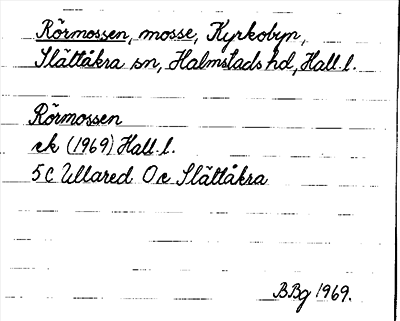 Rörmossen, mosse, Kyrkobyn,
Slättåkra sn, Halmstads hd, Hall. l.
Rörmossen
ek (1969) Hall. l.
5C Ullared 0e Slättåkra
BBg 1969.